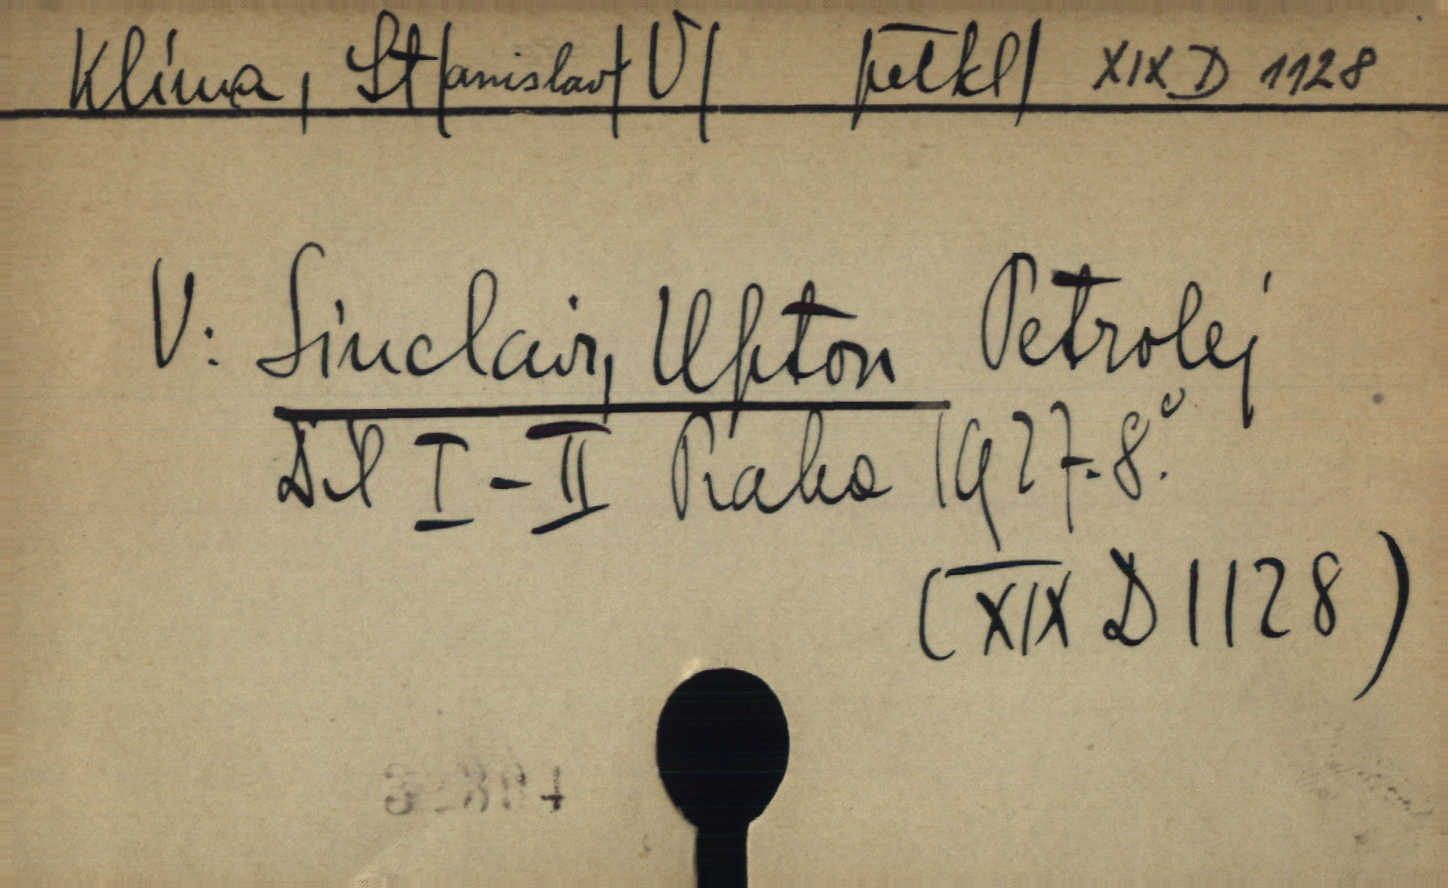 Klíma, St/anislav/ V/ přelkl/ XIX D 1128
V: Sinclair, Upton Petrolej
Díl I-II Praha 1927-8.°
(XIX D 1128)